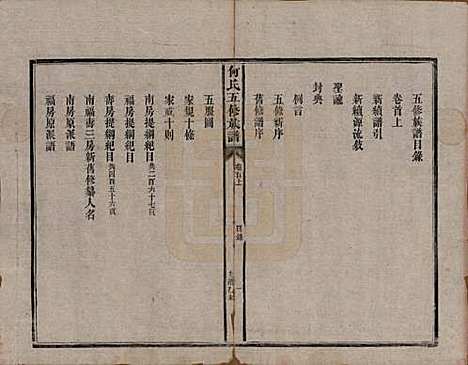 五修族譜目錄
卷首上
新續譜引
新續源流敘
聖諭
封典
例言
五修新序
舊修譜序
何氏五修族譜
卷首上
目錄
一
五服圖
家規十條
家戒十則
南房提綱紀目共二百六十七頁
福房提綱紀目
壽房提綱紀目共四百五十六頁
南福壽三房新舊修纂人名
南房原派語
福房原派語